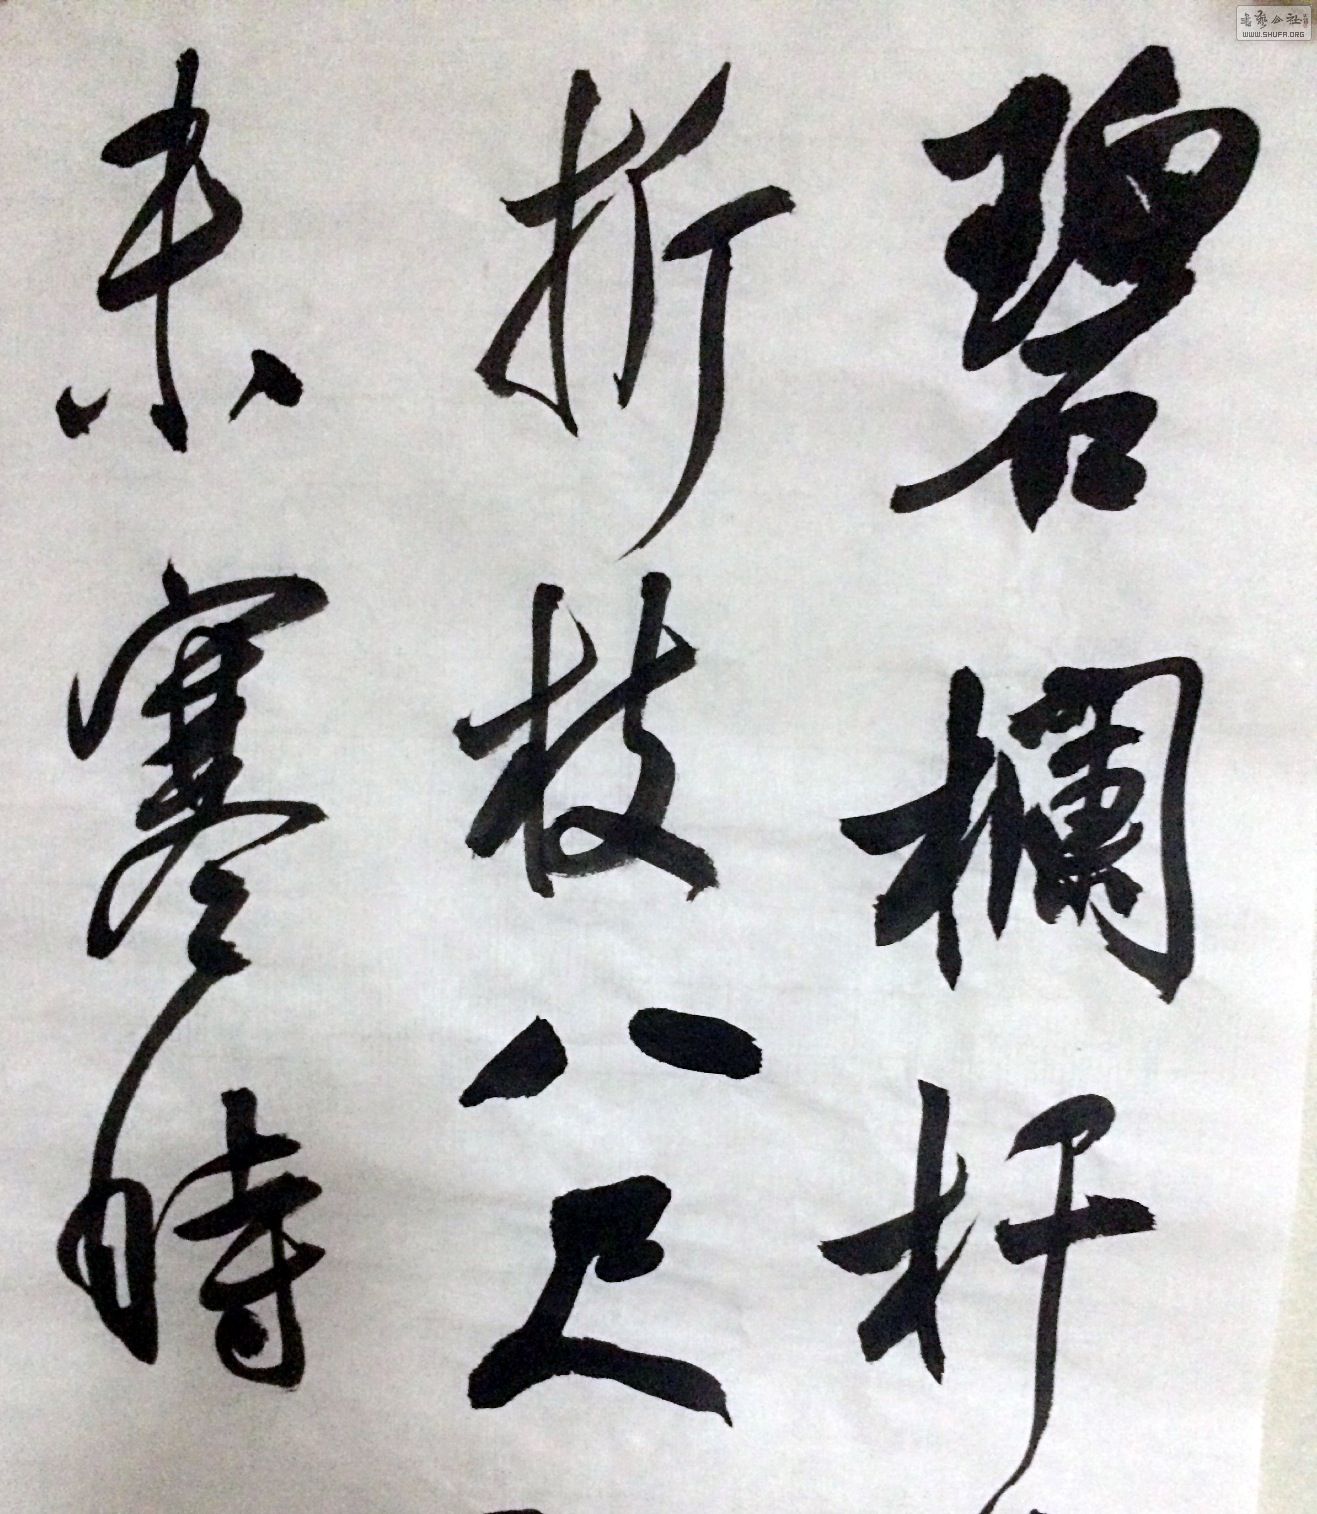 碧欄杆
折枝八尺
未寒時
書藝公社
WWW.SHUFA.ORG